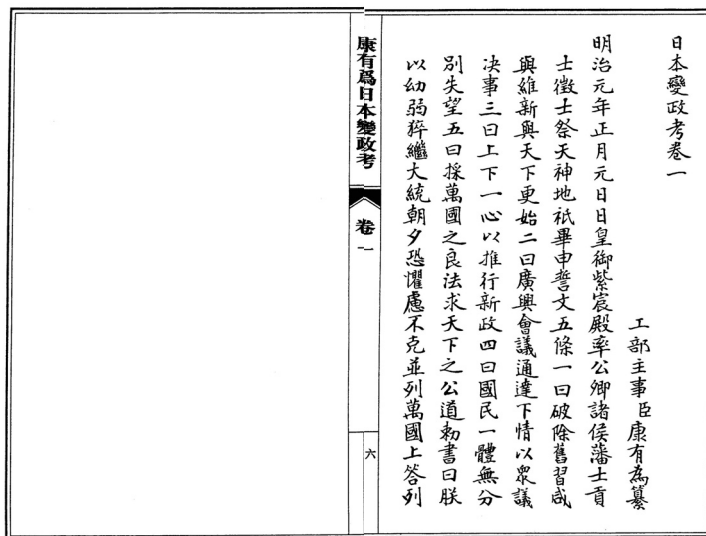 日本變政考卷一
工部主事臣康有為纂
明治元年正月元日日皇御紫宸殿率公卿諸侯藩士貢
士徵士祭天神地祇畢申誓文五條一曰破除舊習咸
與維新與天下更始二曰廣興會議通達下情以眾議
决事三曰上下一心以推行新政四曰國民一體無分
別失望五曰採萬國之良法求天下之公道勅書曰朕
以幼弱猝繼大統朝夕恐懼慮不克並列萬國上答列
康有爲日本變政考
卷一
六